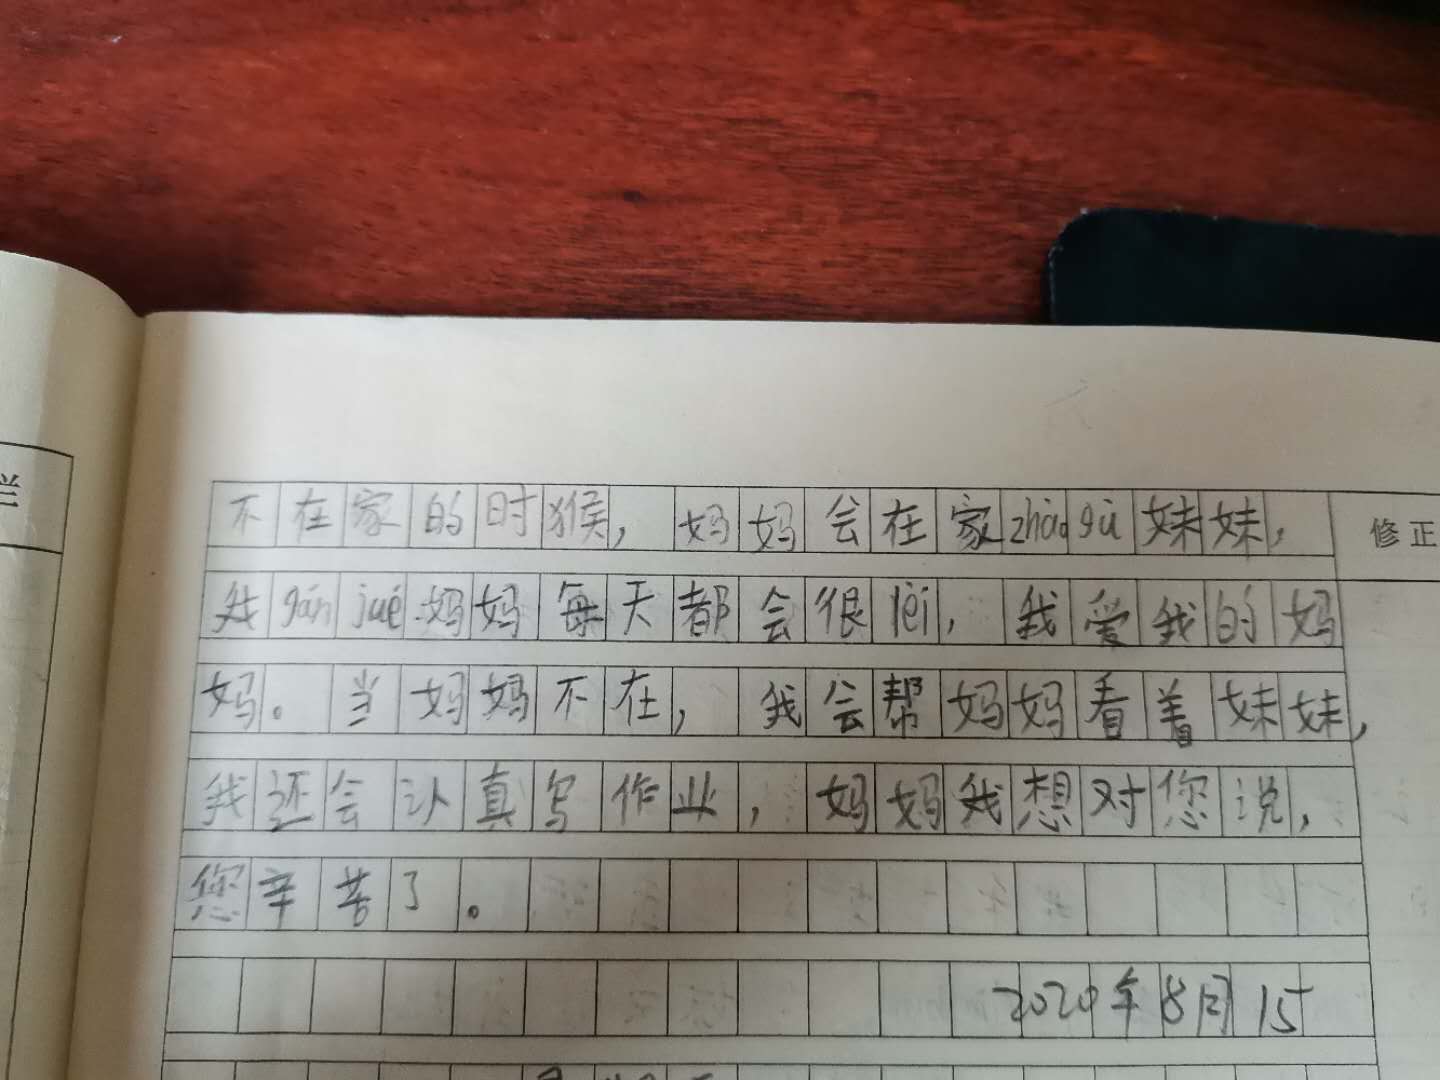 栏
不在家的时猴，妈妈会在家zhàogù妹妹，
修正
我gánjué妈妈每天都会很lèi，我爱我的妈
妈。当妈妈不在，我会帮妈妈看着妹妹，
我还会认真写作业，妈妈我想对您说，
您辛苦了。
2020年8月15